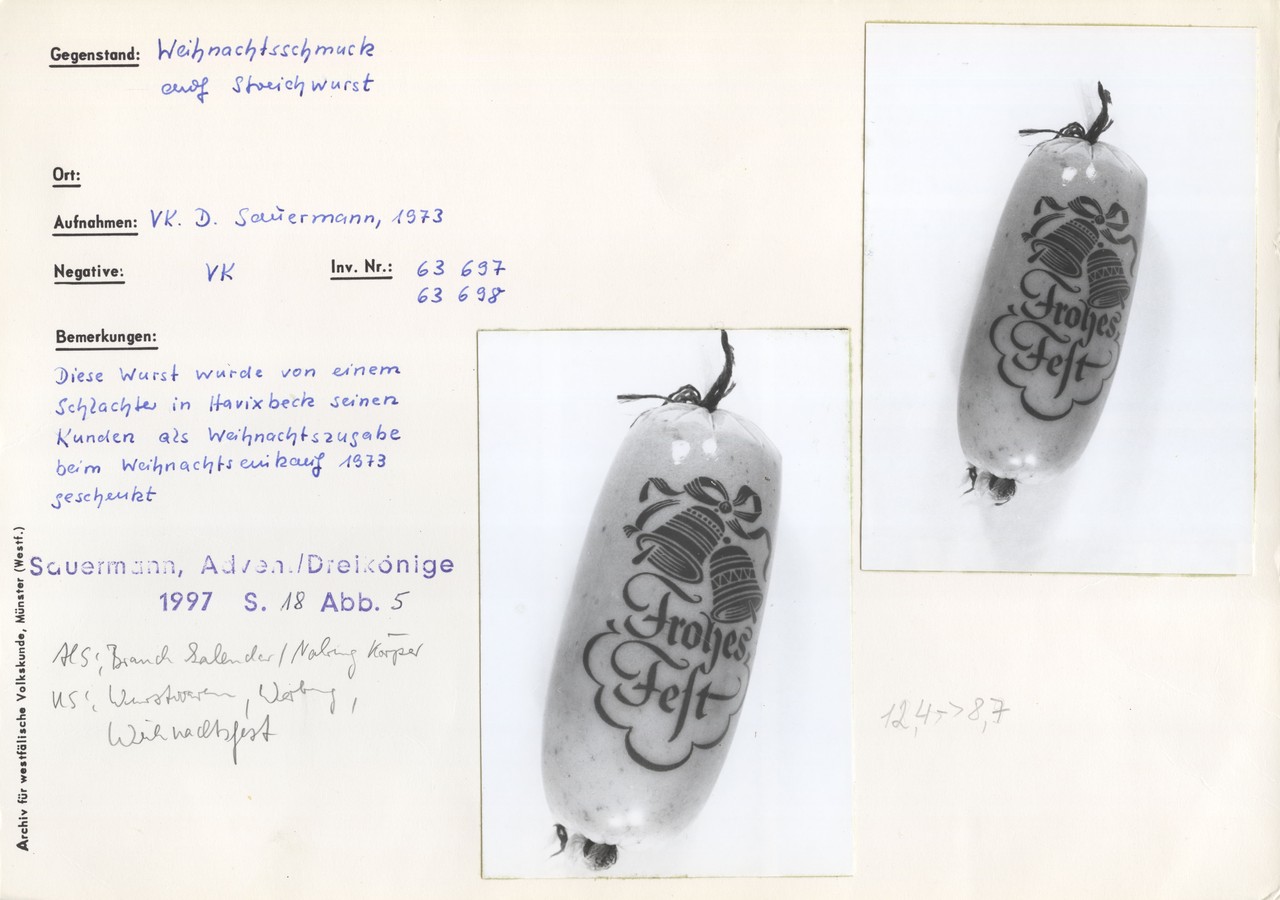 Gegenstand: Weihnachtsschmuck
auf Streichwurst
Ort:
Aufnahmen: VK. D. Sauermann, 1973
Negative: VK Inv. Nr.: 63 697
63 698
Bemerkungen:
Diese Wurst wurde von einem
Schlachter in Havixbeck seinen
Kunden als Weihnachtszugabe
beim Weihnachtseinkauf 1973
geschenkt
Sauermann, Adven./Dreikönige
1997 S. 18 Abb. 5
Brauch Kalender / Nahrung Körper
Wurstwaren, Werbung,
Weihnachtsfest
Archiv für westfälische Volkskunde, Münster (Westf.)
Frohes
Fest
Frohes
Fest
12,4->8,7